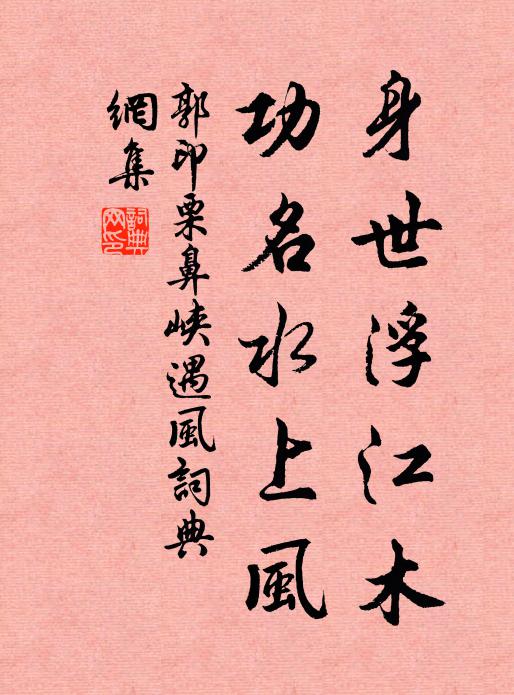 身世浮江木
功名水上風
郭印栗鼻峽遇風詞典
網集
詞典
網印